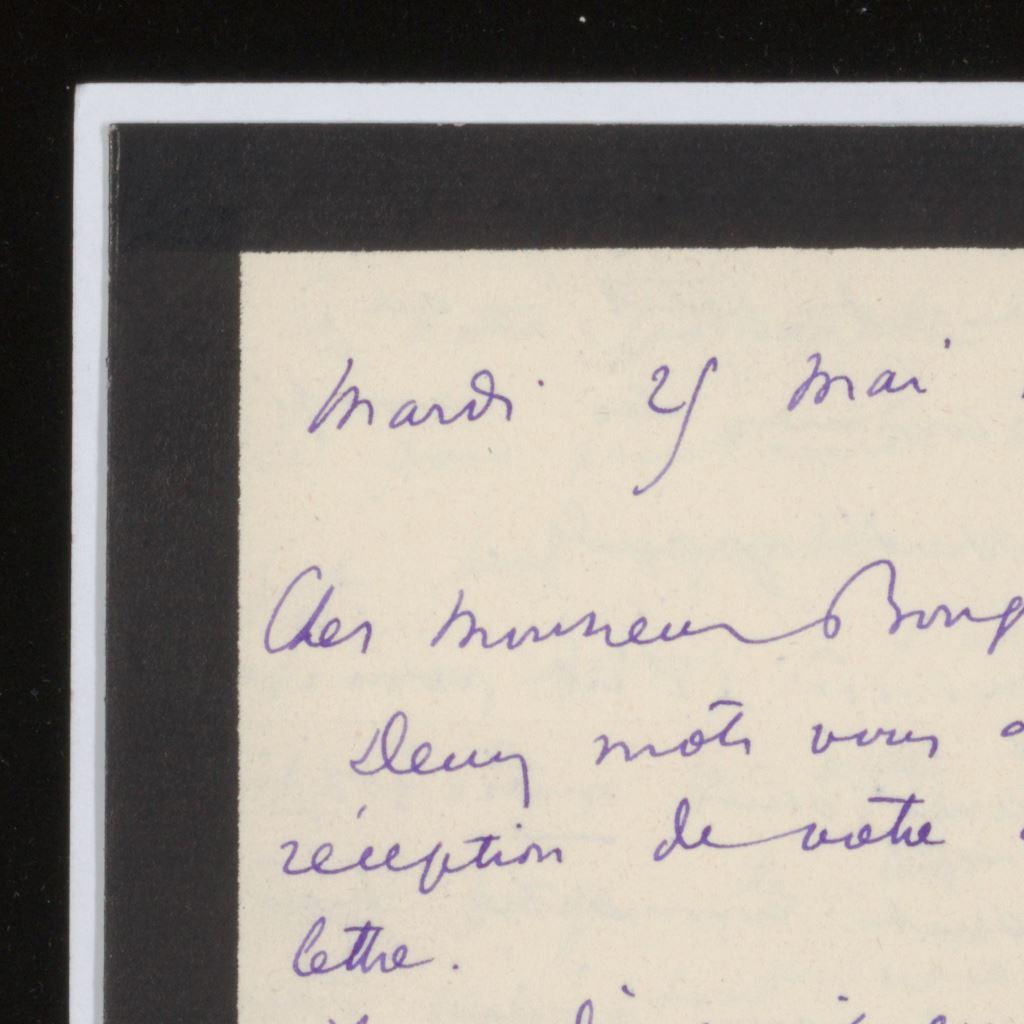 Mardi 25 Mai
Cher Monsieur
Deux mots vous
réception de votre
lettre.